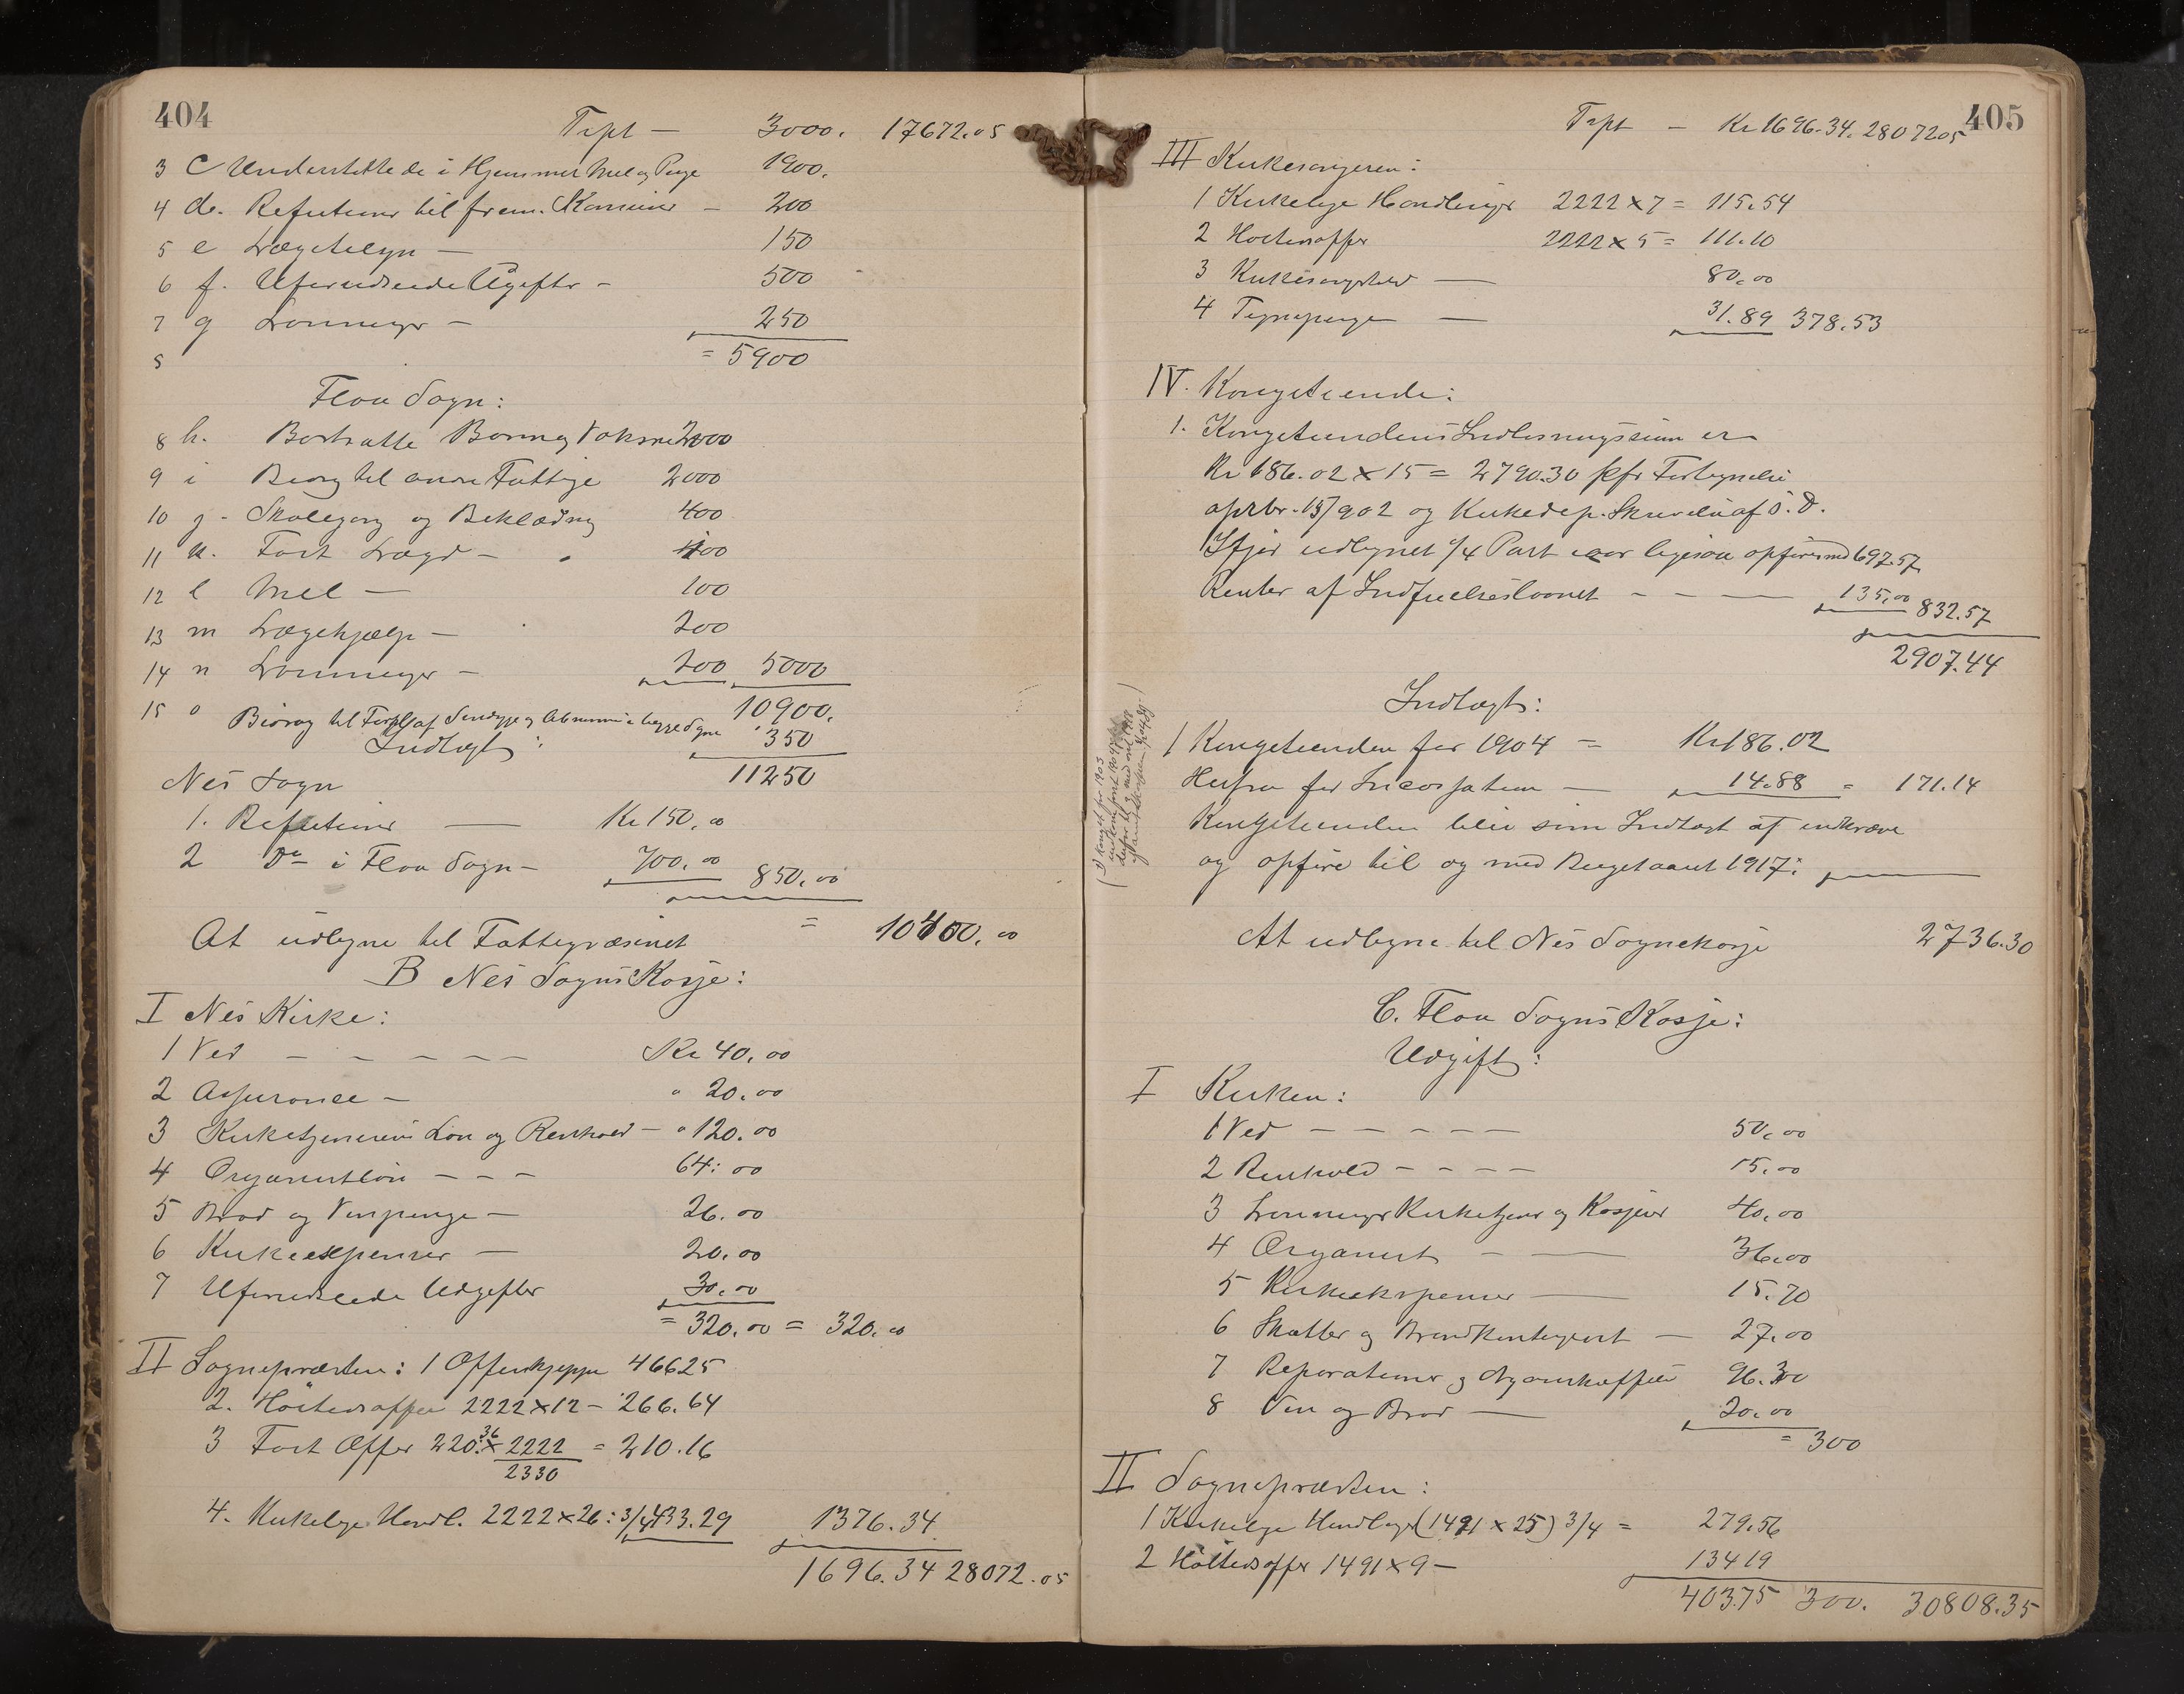 404
Trpt — 3000. 17672.05
3 C Understøttede i Hjemmet Mel og Penge 1900.
4 d. Refutioner til frem. Komuner — 200
5 e Lægetilsyn — 150
6 f. Uforudseede Udgifter — 500
7 g Lønninger — 250
8 = 5900
Flaa Sogn:
8 h. Bortsatte Børn og Voksne 2000
9 i Bidrag til andre Fattige 2000
10 j - Skolegang og Beklædning 400
11 k. Fast Lægd — 100
12 l Mel — 100
13 m Lægehjælp — 200
14 n Lønninger — 200 5000
10900.
15 o Bidrag til Forpl af Sindsyge og lebnummi i begge Sogne 350
Indtægt:
11250
Nes Sogn
1. Refutioner — Kr 150,00
2 Do i Flaa Sogn — 700,00 850,00
At udligne til Fattigvæsenet = 10400,00
B Nes Sogns Kasse:
I Nes Kirke:
1 Ved — — — — — Kr 40,00
2 Assurance — " 20.00
3 Kirketjenerens Løn og Renhold — " 120.00
4 Organistløn — — — 64:00
5 Brød og Vinpenge — 26.00
6 Kirkeexpenser — 20.00
7 Uforudseede Udgifter 30.00
= 320.00 = 320,00
II Sognepræsten: 1 Offerskjeppe 46625
2. Høitidsoffer 2222 x 12 — 266.64
3 Fast Offer 220.36 x 2222 = 210.16
2330
4. Kirkelige Handl. 2222 x 26: 3/4 433.29 1376.34
1696.34 28072.05
405
Trpt — Kr 1696.34. 2807205
III Kirkesangeren:
1 Kirkelige Handlinger 2222 x 7 = 115.54
2 Høitidsoffer 2222 x 5 = 111.10
3 Kirkesangerhold — 80,00
4 Tegnepenge — 31.89 378.53
IV. Kongetiende:
1. Kongetiendens Indløsningssum er
Kr 186.02 x 15 = 2790.30 jfr Forlignelse
aprbr. 15/902 og Kirkedep. Skrivelse af S. D.
Ifjor udlignet 1/4 Part i aar ligesaa opføres med 697.57
Renter af Indfrielseslaanet — — — 135,00 832.57
2907.44
Indtægt:
1 Kongetienden for 1904 = Kr 186.02
Herfra for Incassation — 14.88 = 171.14
Kongetienden blir som Indtægt at indkræve
og opføre til og med Budgetaaret 1917:
At udligne til Nes Sognekasse 2736.30
C. Flaa Sogns Kasse:
Udgift:
I Kirken:
1 Ved — — — — — 50,00
2 Renhold — — — — 15.00
3 Lønninger Kirketjener og Kasserer 40,00
4 Organist — — 36,00
5 Kirkeekspenser — 15.70
6 Skatter og Brandkontingent — 27,00
7 Reparationer og Nyanskaffelse 96.30
8 Vin og Brød — 20,00
= 300
II Sognepræsten:
1 Kirkelige Handlinger (1491 x 25) 3/4 = 279.56
2 Høitidsoffer 1491 x 9 — 13419
403.75 300. 30808.35